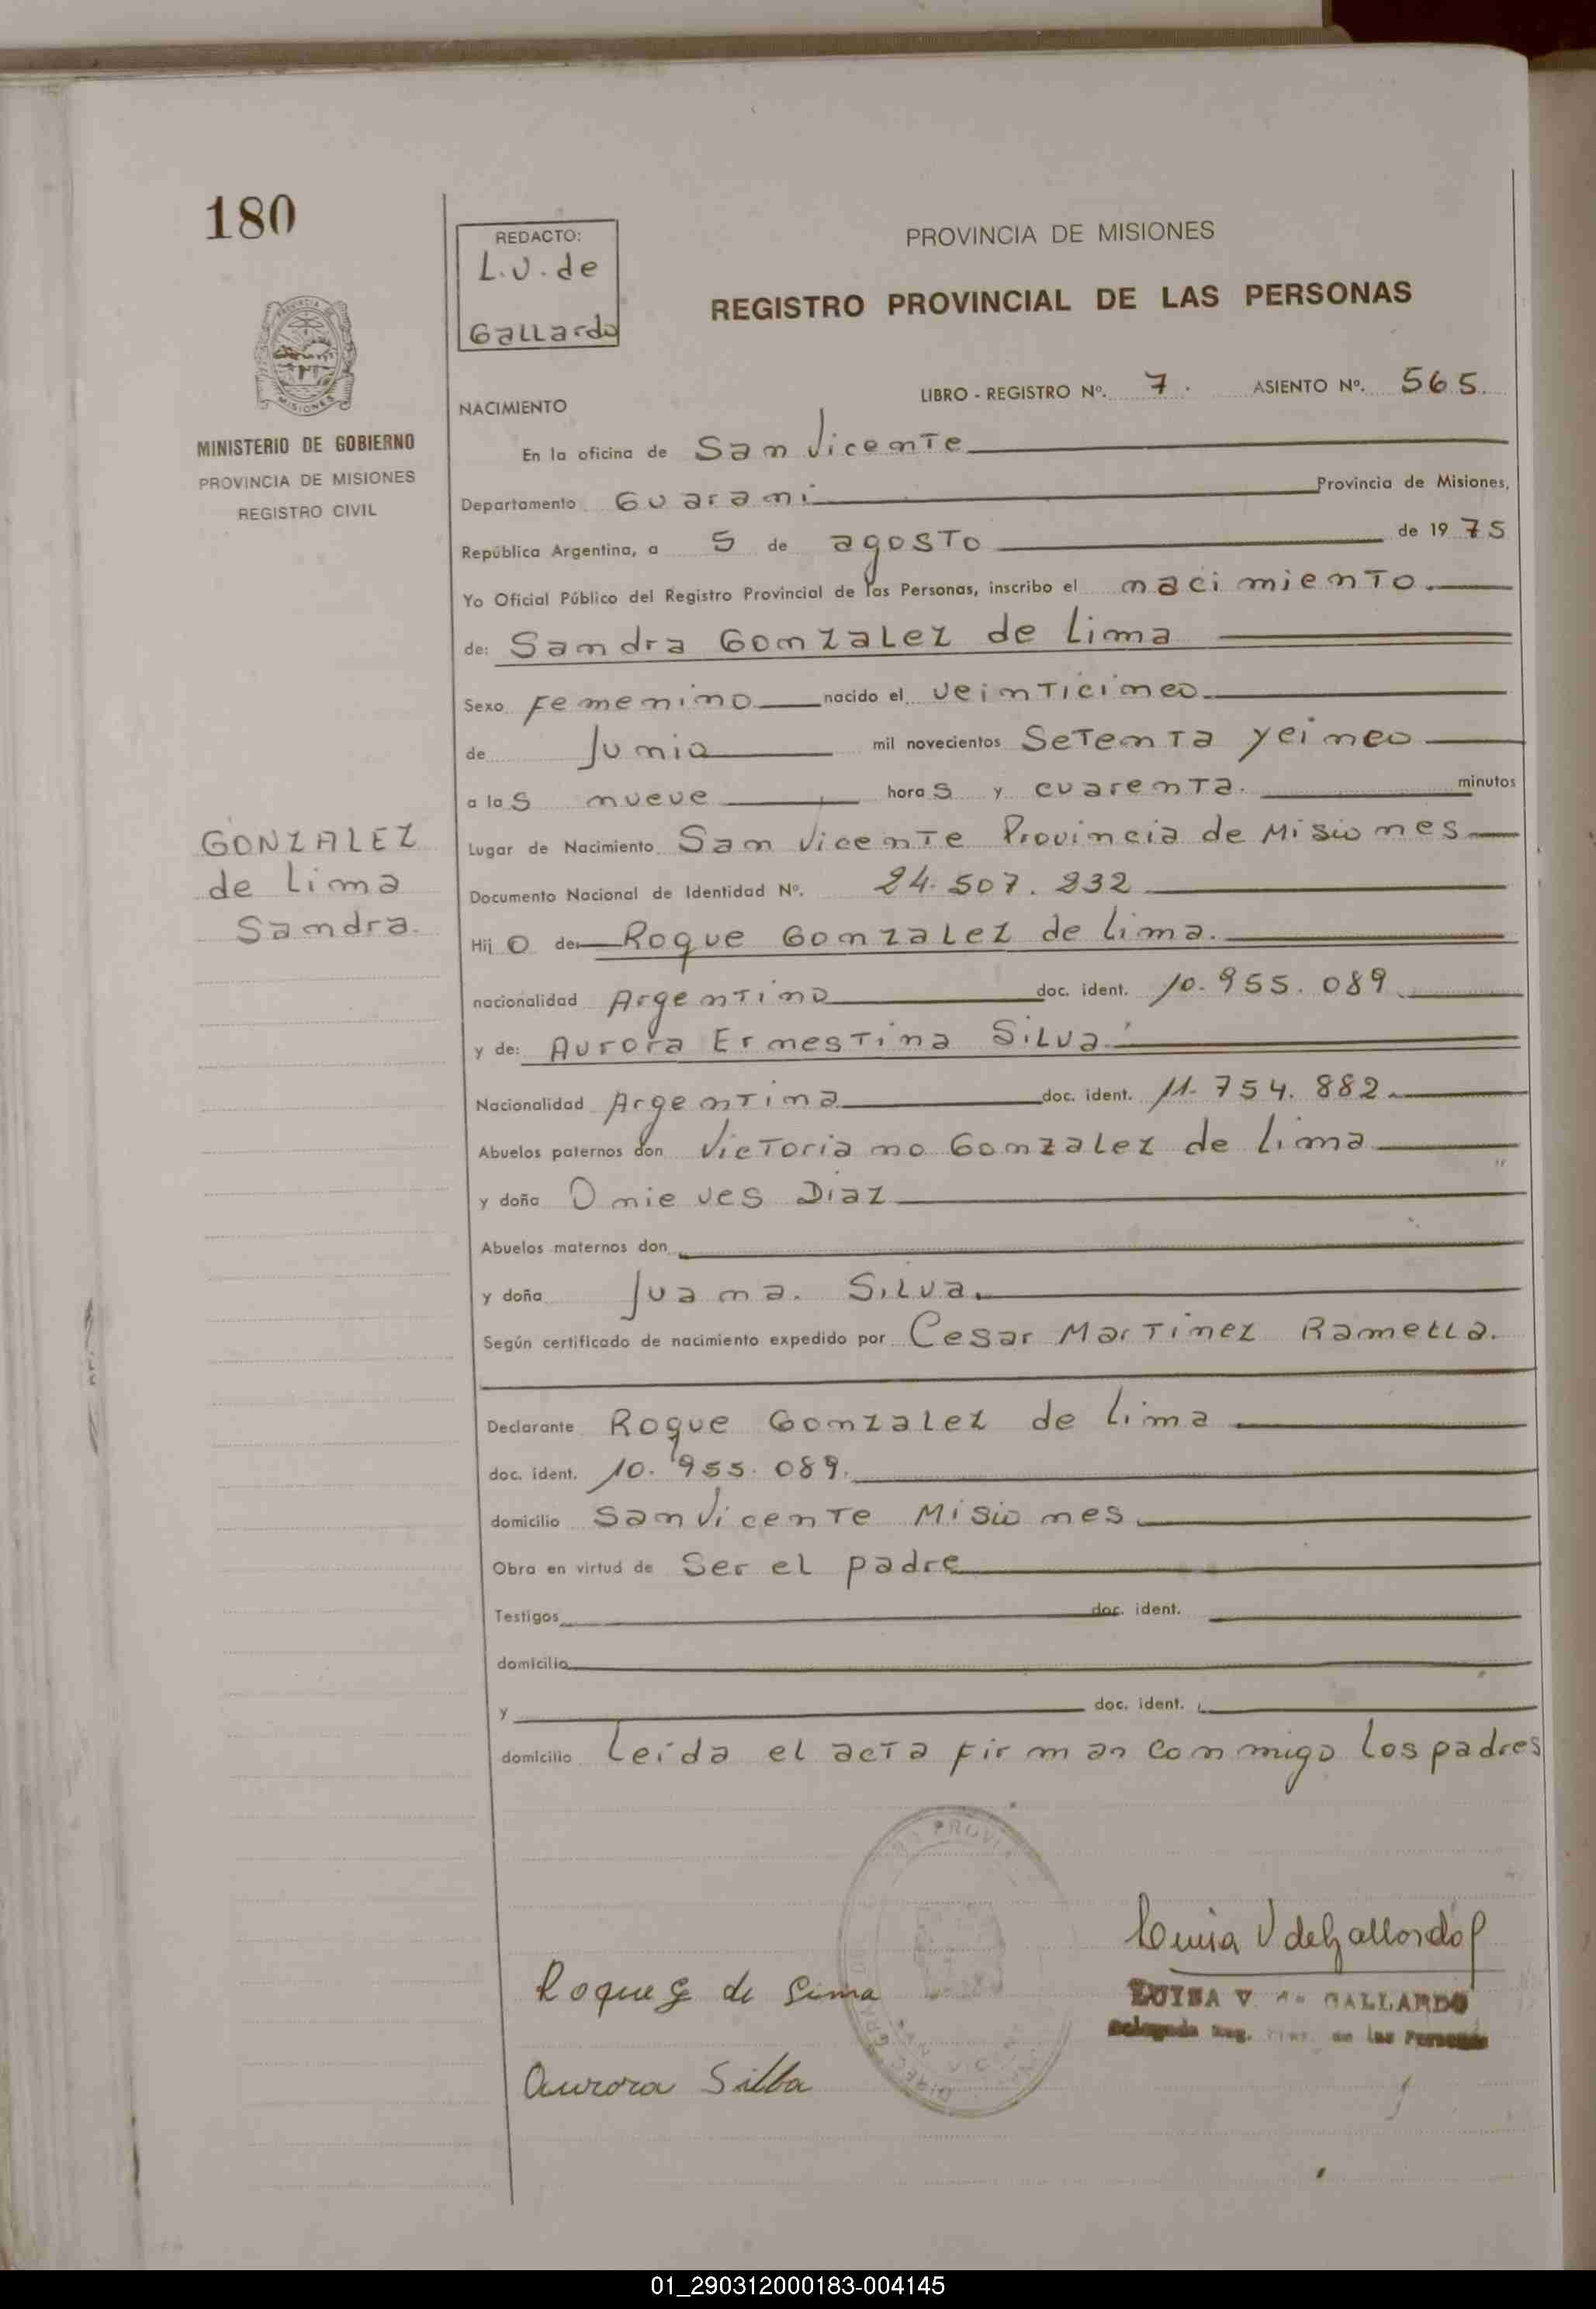 180
REDACTO:
L.V. de
Gallardo
PROVINCIA DE MISIONES
REGISTRO PROVINCIAL DE LAS PERSONAS
MISIONES
MINISTERIO DE GOBIERNO
PROVINCIA DE MISIONES
REGISTRO CIVIL
LIBRO - REGISTRO Nº. 7. ASIENTO Nº. 565.
NACIMIENTO
En la oficina de San Vicente
Departamento Guarani Provincia de Misiones,
República Argentina, a 5 de agosto de 1975
Yo Oficial Público del Registro Provincial de las Personas, inscribo el nacimiento.
de: Sandra Gonzalez de Lima
Sexo Femenino nacido el veinticinco.
de Junio mil novecientos Setenta y cinco
a las nueve horas y cuarenta. minutos
GONZALEZ
de Lima
Sandra.
Lugar de Nacimiento San Vicente Provincia de Misiones
Documento Nacional de Identidad Nº. 24.507.232
Hijo de: Roque Gonzalez de Lima.
nacionalidad Argentino doc. ident. 10.955.089
y de: Aurora Ernestina Silva.
Nacionalidad Argentina doc. ident. 11.754.882
Abuelos paternos don Victoriano Gonzalez de Lima
y doña Onieves Diaz
Abuelos maternos don
y doña Juana. Silva.
Según certificado de nacimiento expedido por Cesar Martinez Ramella.
Declarante Roque Gonzalez de Lima
doc. ident. 10.955.089.
domicilio San Vicente Misiones
Obra en virtud de Ser el padre
Testigos doc. ident.
domicilio
y doc. ident.
domicilio Leída el acta firman conmigo los padres
Luisa V de Gallardo
LUISA V. de GALLARDO
Delegada Reg. Prov. de las Personas
Roque G de Lima
Aurora Silba
01_290312000183-004145